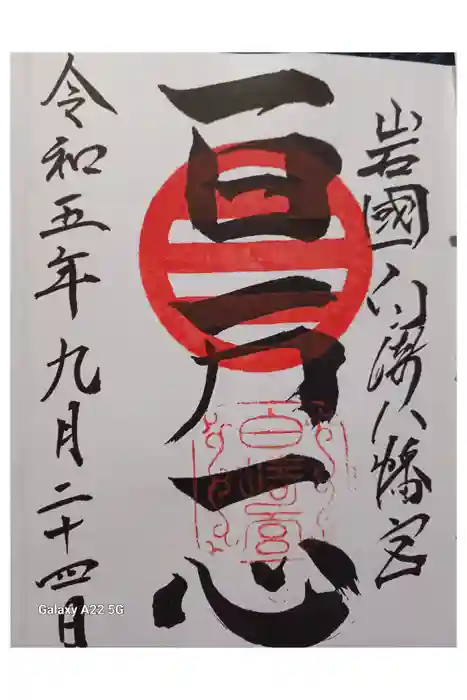 岩國白崎八幡宮
百万一心
白崎宮
令和五年九月二十四日
Galaxy A22 5G